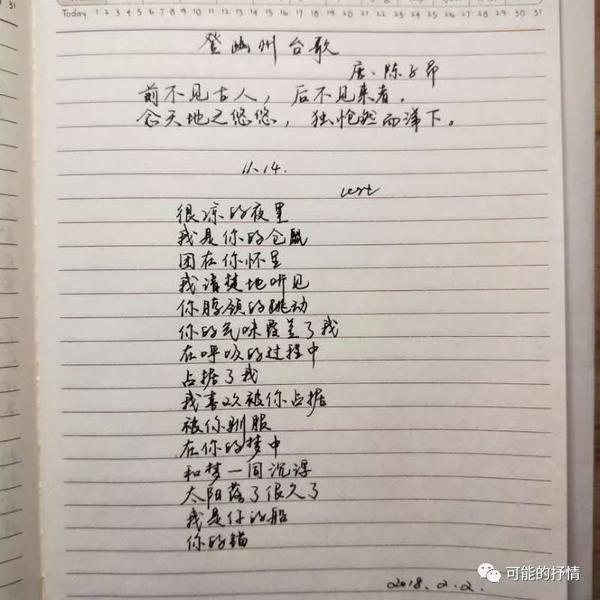 Today 1 2 3 4 5 6 7 8 9 10 11 12 13 14 15 16 17 18 19 20 21 22 23 24 25 26 27 28 29 30 31
登幽州台歌
唐·陈子昂
前不见古人，后不见来者。
念天地之悠悠，独怆然而涕下。
11.14.
很凉的夜里
我是你的仓鼠
团在你怀里
我清楚地听见
你脖颈的跳动
你的气味覆盖了我
在呼吸的过程中
占据了我
我喜欢被你占据
被你驯服
在你的梦中
和梦一同沉浮
太阳落了很久了
我是你的船
你的锚
2018.2.2.
可能的抒情